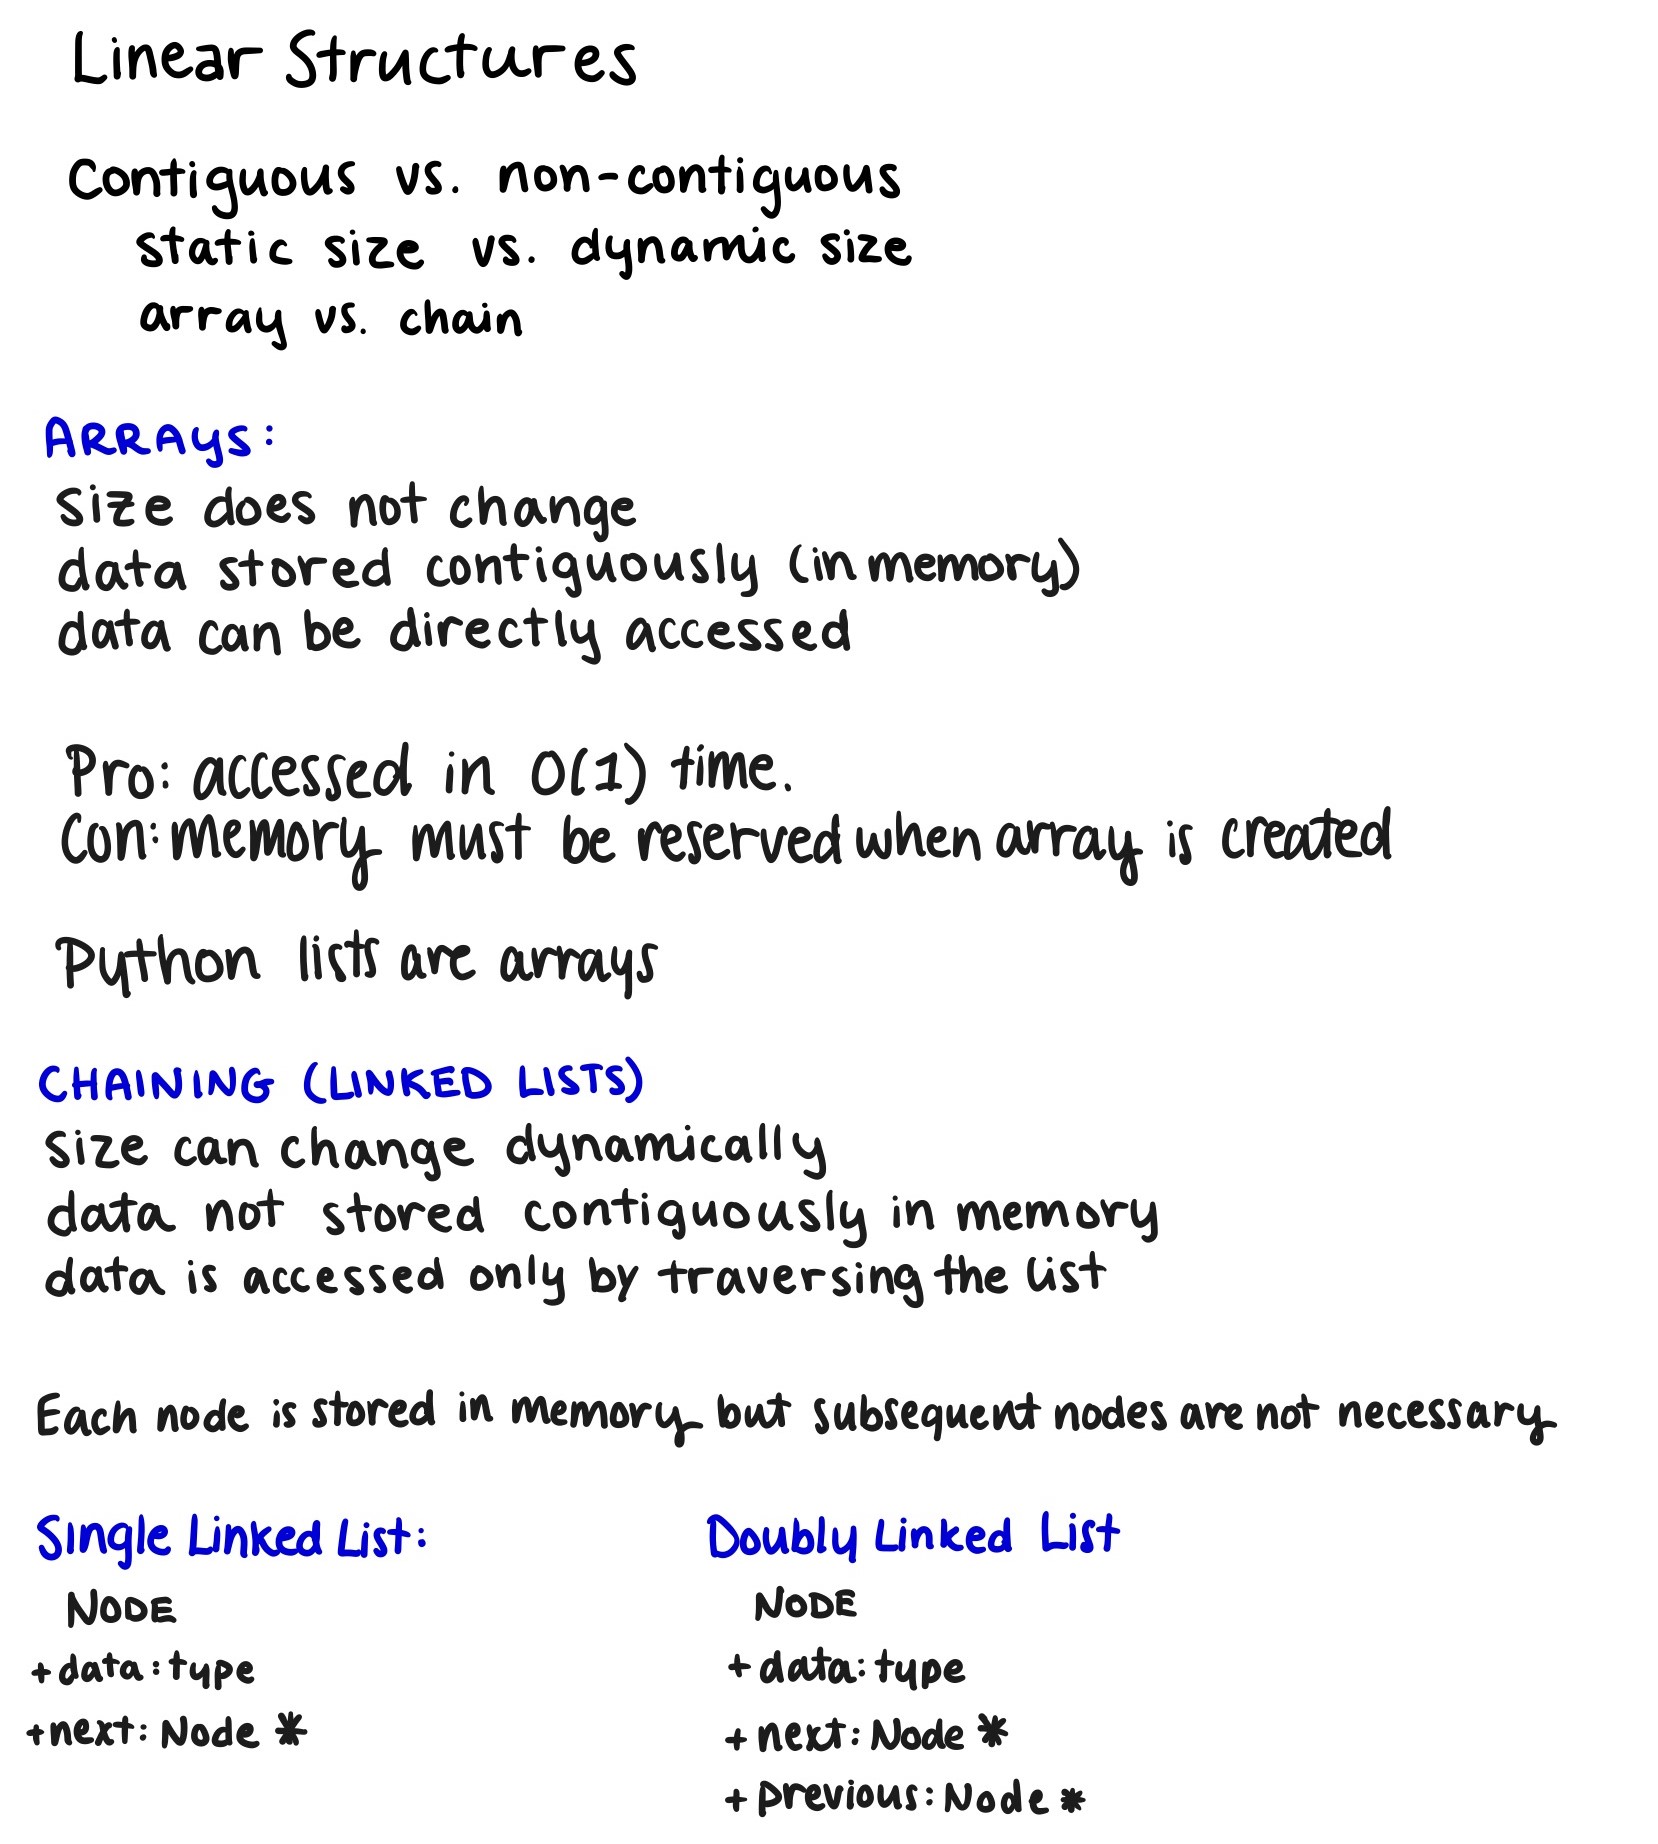 Linear Structures
Contiguous vs. non-contiguous
static size vs. dynamic size
array vs. chain
ARRAYS:
size does not change
data stored contiguously (in memory)
data can be directly accessed
Pro: accessed in O(1) time.
Con: memory must be reserved when array is created
Python lists are arrays
CHAINING (LINKED LISTS)
size can change dynamically
data not stored contiguously in memory
data is accessed only by traversing the list
Each node is stored in memory but subsequent nodes are not necessary
Single Linked List:
NODE
+data: type
+next: Node *
Doubly Linked List
NODE
+ data: type
+ next: Node *
+ previous: Node *